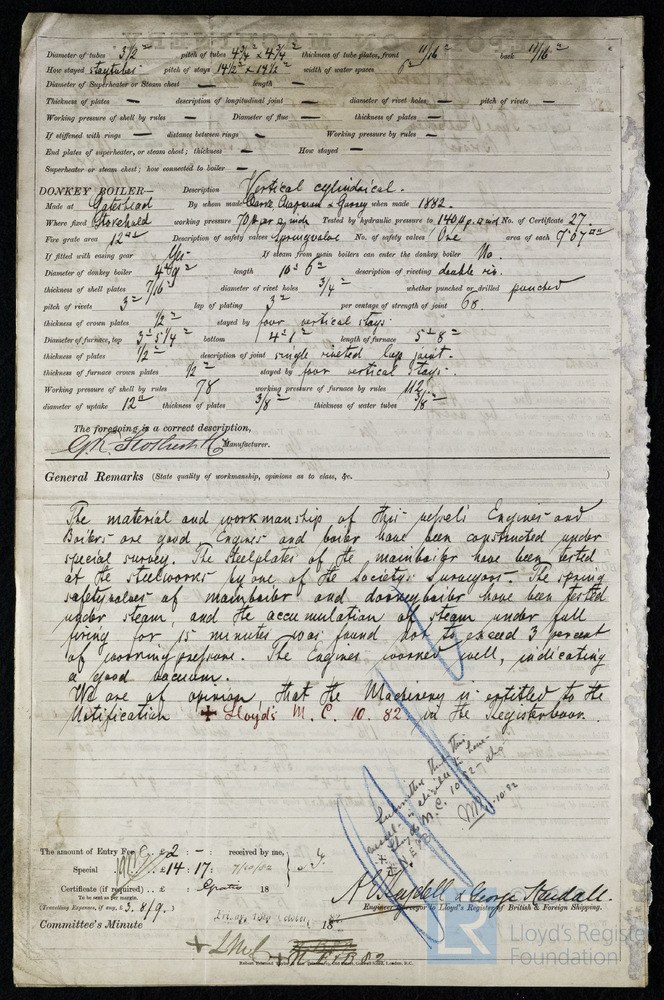 Diameter of tubes 3 1/2" pitch of tubes 4 3/4" x 4 3/4" thickness of tube plates, front 11/16" back 11/16"
How stayed staytubes pitch of stays 14 1/2" x 14 1/2" width of water spaces
Diameter of Superheater or Steam chest — length —
Thickness of plates — description of longitudinal joint — diameter of rivet holes — pitch of rivets —
Working pressure of shell by rules — Diameter of flue — thickness of plates —
If stiffened with rings — distance between rings — Working pressure by rules —
End plates of superheater, or steam chest; thickness — How stayed —
Superheater or steam chest; how connected to boiler —
DONKEY BOILER— Description Vertical cylindrical.
Made at Gateshead By whom made Clarke Chapman & Gurney when made 1882.
Where fixed Stokehold working pressure 70 lb per sq. inch Tested by hydraulic pressure to 140 lb p. sq inch No. of Certificate 27.
Fire grate area 12 Description of safety valves Springvalve No. of safety valves One area of each 7.07
If fitted with easing gear Yes If steam from main boilers can enter the donkey boiler No.
Diameter of donkey boiler 4' 9" length 10' 6" description of riveting double riv.
thickness of shell plates 7/16" diameter of rivet holes 3/4" whether punched or drilled punched
pitch of rivets 3" lap of plating 3" per centage of strength of joint 68.
thickness of crown plates 1/2" stayed by four vertical stays
Diameter of furnace, top 3' 5 1/4" bottom 4' 1" length of furnace 5' 8"
thickness of plates 1/2" description of joint single riveted lap joint.
thickness of furnace crown plates 1/2" stayed by four vertical stays.
Working pressure of shell by rules 78 working pressure of furnace by rules 112
diameter of uptake 12" thickness of plates 3/8" thickness of water tubes 3/8"
The foregoing is a correct description,
Manufacturer.
General Remarks (State quality of workmanship, opinions as to class, &c.
The material and workmanship of this vessels Engines and
Boilers are good. Engines and boiler have been constructed under
special survey. The steelplates of the mainboiler have been tested
at the steelworks by one of the Society's Surveyors. The spring
safetyvalves of mainboiler and donkeyboiler have been tested
under steam, and the accumulation of steam under full
firing for 15 minutes was found not to exceed 3 percent
of workingpressure. The Engines worked well, indicating
a good vacuum.
We are of opinion that the Machinery is entitled to the
Notification + Lloyd's M. C. 10. 82 in the Registerbook.
Submitted that this
vessel is eligible to have
+ Lloyds M.C. 10.82 also
10.82
The amount of Entry Fee £2 : - : received by me,
Special £14 : 17 : 7/10/82
Certificate (if required) .. £ : Gratis 18
To be sent as per margin.
(Travelling Expenses, if any, £ 3.8/9.)
& George Kendall.
Engineer Surveyor to Lloyd's Register of British & Foreign Shipping.
Committee's Minute 18
+ LMC
Lloyd's Register
Foundation
LR